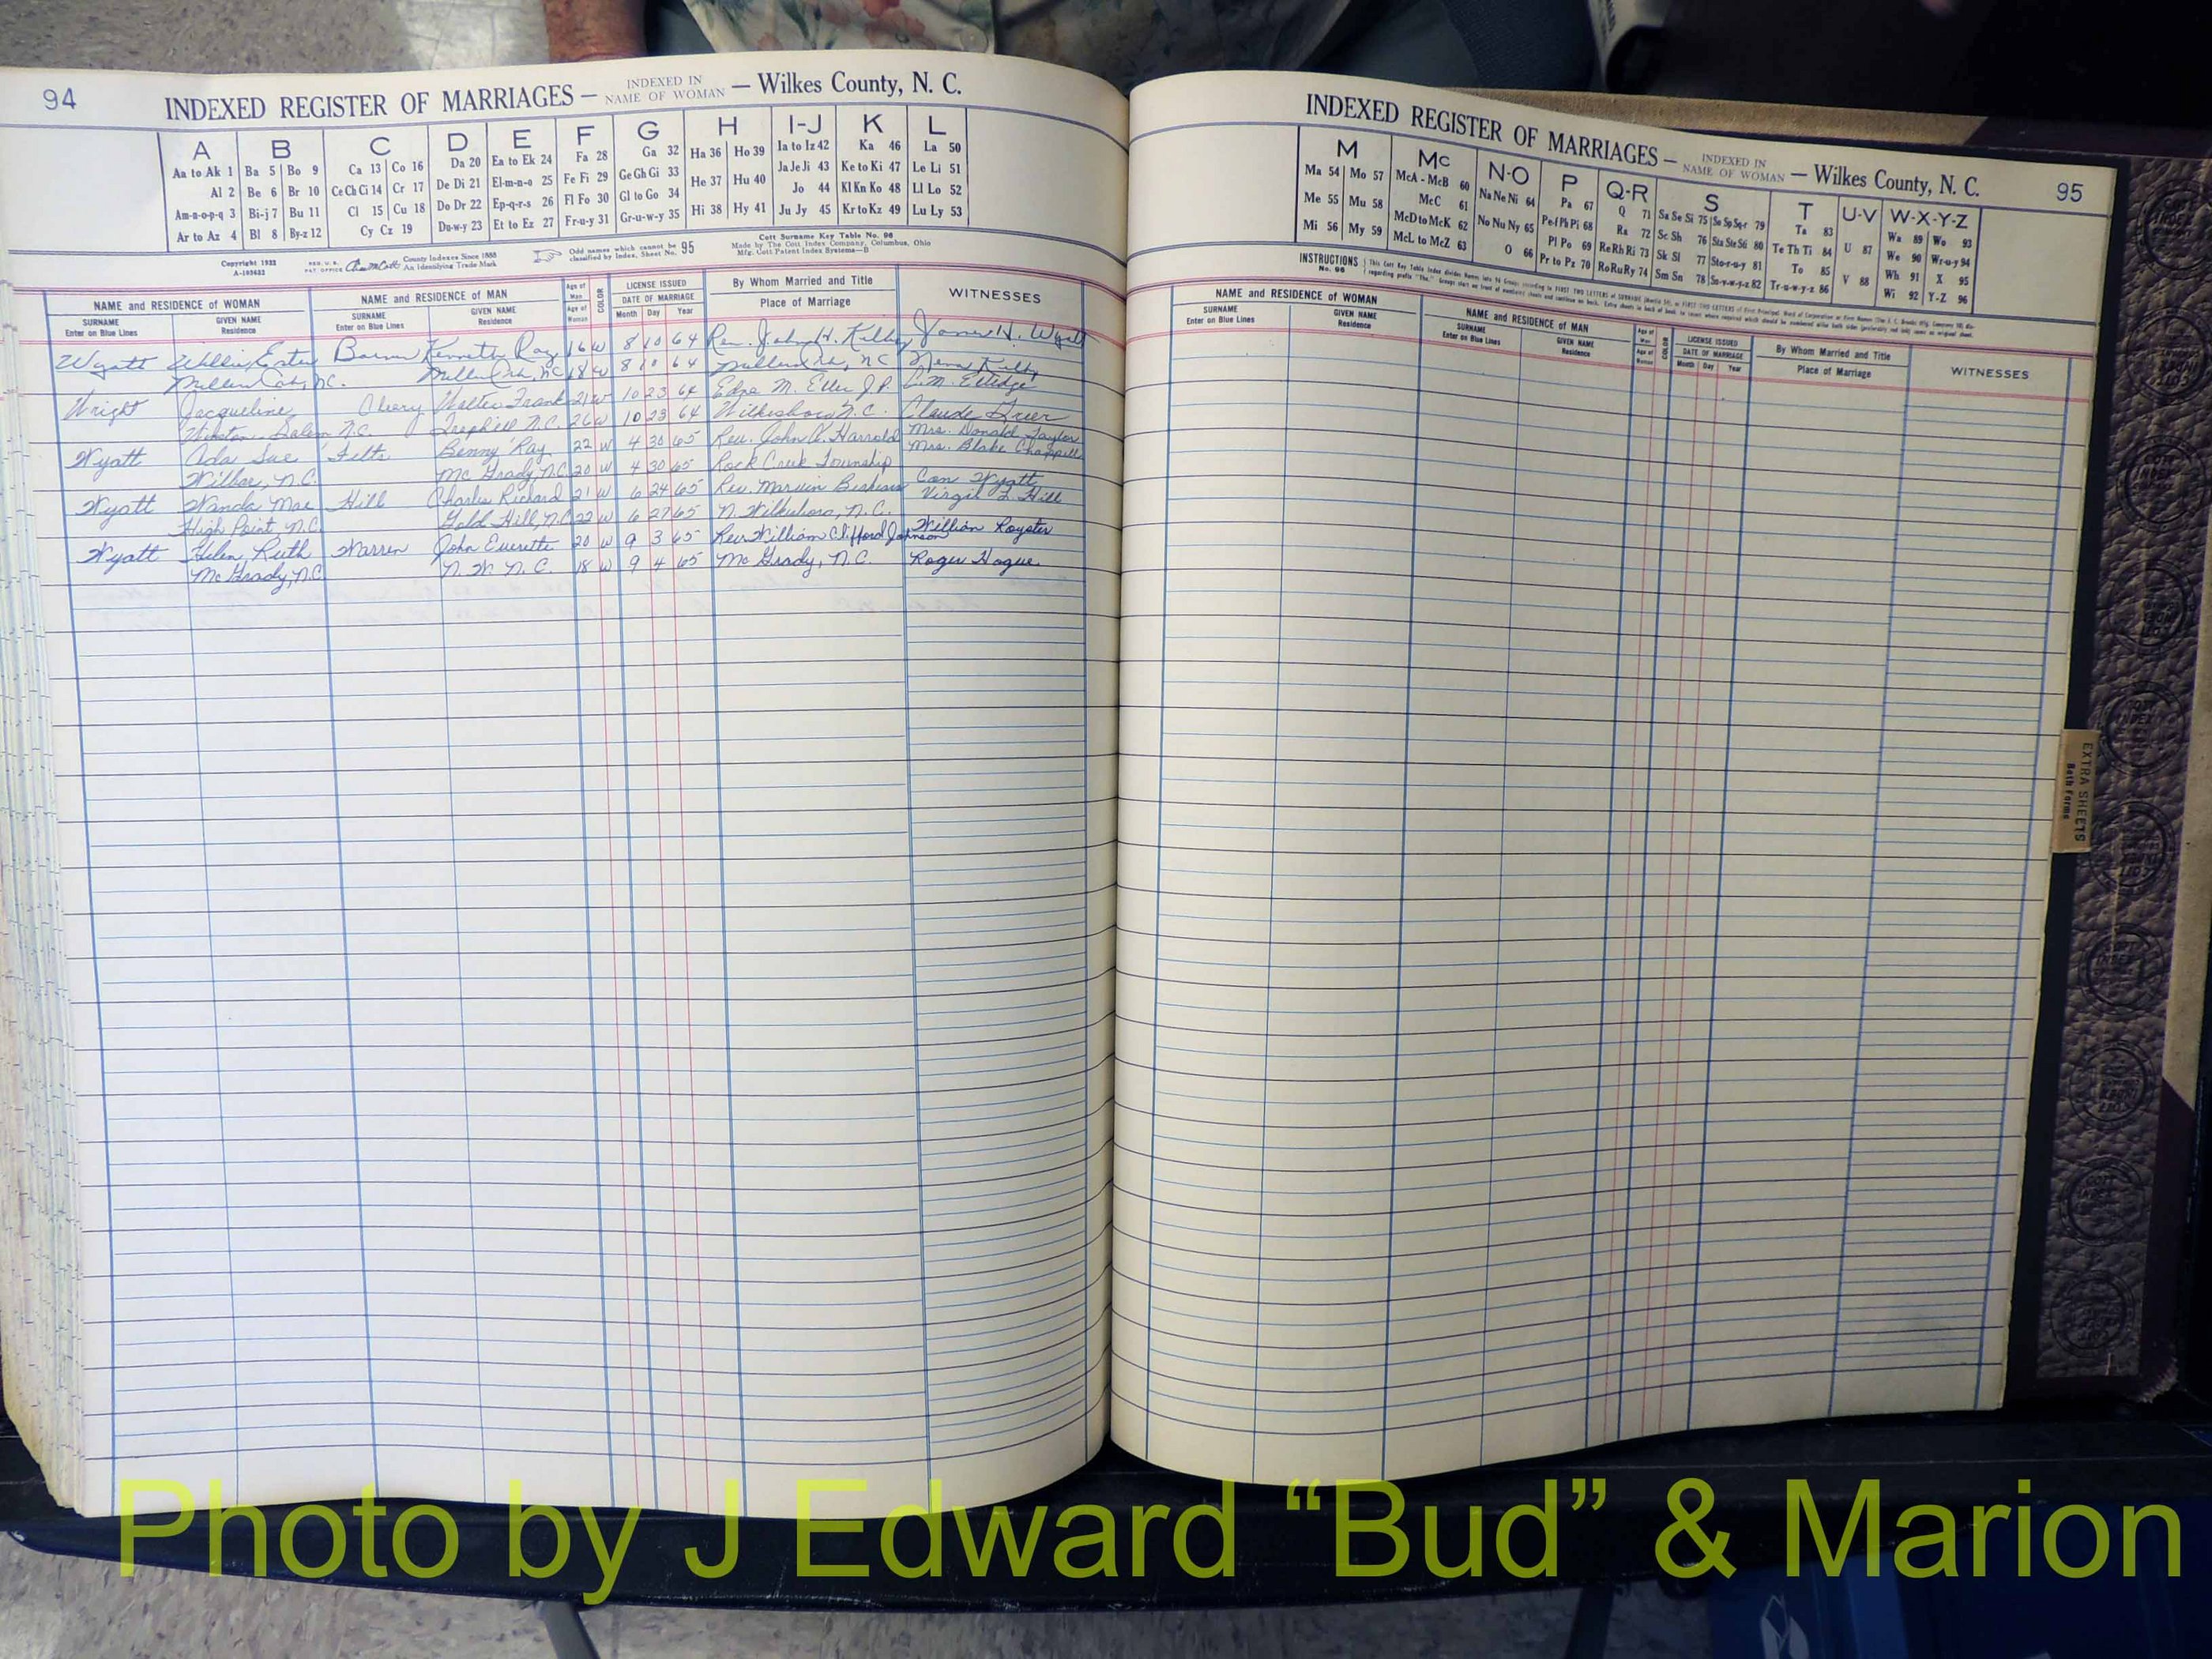 94
INDEXED REGISTER OF MARRIAGES — INDEXED IN NAME OF WOMAN — Wilkes County, N. C.
A B C D E F G H I-J K L
Aa to Ak 1 Ba 5 Bo 9 Ca 13 Co 16 Da 20 Ea to Ek 24 Fa 28 Ga 32 Ha 36 Ho 39 Ia to Iz 42 Ka 46 La 50
Al 2 Be 6 Br 10 Ce Ch Ci 14 Cr 17 De Di 21 El-m-n-o 25 Fe Fi 29 Ge Gh Gi 33 He 37 Hu 40 Ja Je Ji 43 Ke to Ki 47 Le Li 51
Am-n-o-p-q 3 Bi-j 7 Bu 11 Cl 15 Cu 18 Do Dr 22 Ep-q-r-s 26 Fl Fo 30 Gl to Go 34 Jo 44 Kl Kn Ko 48 Ll Lo 52
Ar to Az 4 Bl 8 By-z 12 Cy Cz 19 Du-w-y 23 Et to Ez 27 Fr-u-y 31 Gr-u-w-y 35 Hi 38 Hy 41 Ju Jy 45 Kr to Kz 49 Lu Ly 53
Copyright 1932
A-103632
REG. U. S. PAT. OFFICE
County Indexes Since 1888
An Identifying Trade Mark
Odd names which cannot be classified by Index, Sheet No. 95
Cott Surname Key Table No. 96
Made by The Cott Index Company, Columbus, Ohio
Mfg. Cott Patent Index Systems—B
NAME and RESIDENCE of WOMAN NAME and RESIDENCE of MAN Age of Man COLOR LICENSE ISSUED By Whom Married and Title WITNESSES
SURNAME GIVEN NAME SURNAME GIVEN NAME Age of Woman DATE OF MARRIAGE Place of Marriage
Enter on Blue Lines Residence Enter on Blue Lines Residence Month Day Year
Wyatt Willie Kenneth Ray 16 W 8 10 64 Rev. John H. Kilby James H. Wyatt
Millers Creek, NC 18 W 8 10 64 Kilby
N.C.
Wright Jacqueline Walter Frank 21 W 10 23 64 Edna M. Eller J.P. C.M. Elledge
Winston-Salem N.C. N.C. 26 W 10 23 64 Wilkesboro N.C. Claude Greer
Wyatt Ada Sue Felts Benny Ray 22 W 4 30 65 Rev. John Harrold Mrs. Donald Taylor
Wilbar, N.C. Mc Grady, N.C. 20 W 4 30 65 Rock Creek Township Mrs. Blake
Wyatt Wanda Mae Hill Charles Richard 21 W 6 24 65 Rev. Marvin Wyatt
High Point N.C. Gold Hill, N.C. 22 W 6 27 65 N. Wilkesboro, N.C. Virgil L. Hill
Wyatt Helen Ruth Warren John Everette 20 W 9 3 65 Rev. William Clifford Johnson William Royster
Mc Grady, N.C. N. W. N. C. 18 W 9 4 65 Mc Grady, N.C. Roger Hague
INDEXED REGISTER OF MARRIAGES — INDEXED IN NAME OF WOMAN — Wilkes County, N. C.
95
M Mc N-O P Q-R S T U-V W-X-Y-Z
Ma 54 Mo 57 McA - McB 60 Na Ne Ni 64 Pa 67 Q 71 Sa Se Si 75 Su Sp Sq-r 79 Ta 83 Wa 89 Wo 93
Me 55 Mu 58 McC 61 No Nu Ny 65 Pe-f Ph Pi 68 Ra 72 Sc Sh 76 Sta Ste Sti 80 Te Th Ti 84 U 87 We 90 Wr-u-y 94
Mi 56 My 59 McD to McK 62 O 66 Pl Po 69 Re Rh Ri 73 Sk Sl 77 Sto-r-u-y 81 To 85 V 88 Wh 91 X 95
McL to McZ 63 Pr to Pz 70 Ro Ru Ry 74 Sm Sn 78 Su-v-w-y-z 82 Tr-u-w-y-z 86 Wi 92 Y-Z 96
INSTRUCTIONS No. 96
NAME and RESIDENCE of WOMAN NAME and RESIDENCE of MAN Age of Man COLOR LICENSE ISSUED By Whom Married and Title WITNESSES
SURNAME GIVEN NAME SURNAME GIVEN NAME Age of Woman DATE OF MARRIAGE Place of Marriage
Enter on Blue Lines Residence Enter on Blue Lines Residence Month Day Year
EXTRA SHEETS
Both Forms
Photo by J Edward “Bud” & Marion